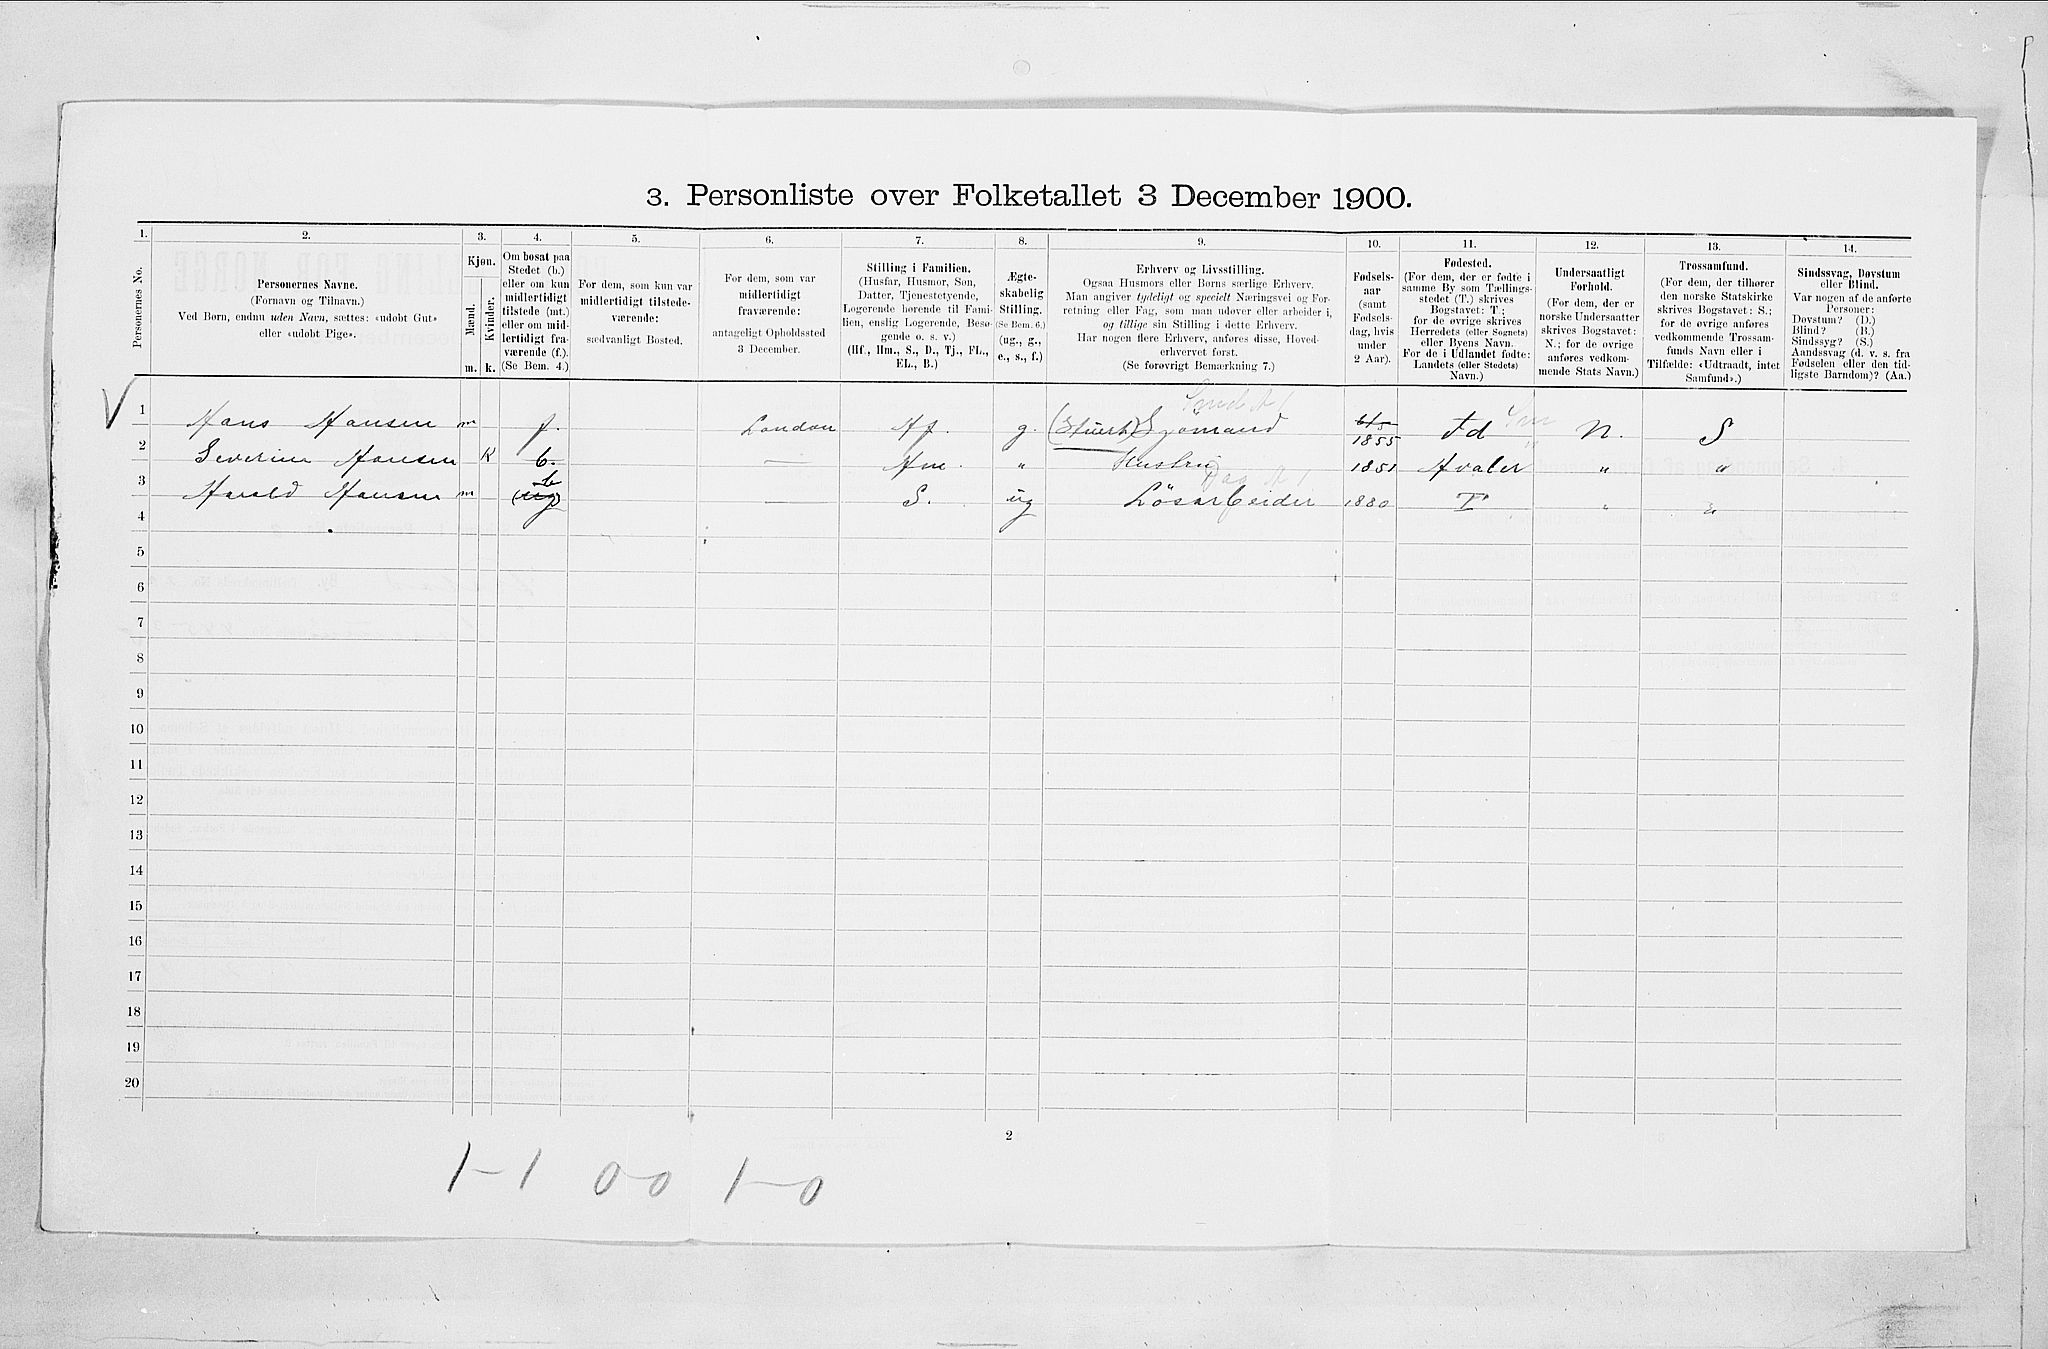 3. Personliste over Folketallet 3 December 1900.
1. 2. 3. 4. 5. 6. 7. 8. 9. 10. 11. 12. 13. 14.
Personernes No.
Personernes Navne.
(Fornavn og Tilnavn.)
Ved Børn, endnu uden Navn, sættes: «udøbt Gut»
eller «udøbt Pige».
Kjøn.
Mænd.
Kvinder.
m. k.
Om bosat paa
Stedet (b.)
eller om kun
midlertidigt
tilstede (mt.)
eller om mid-
lertidigt fra-
værende (f.).
(Se Bem. 4.)
For dem, som kun var
midlertidigt tilstede-
værende:
sædvanligt Bosted.
For dem, som var
midlertidigt
fraværende:
antageligt Opholdssted
3 December.
Stilling i Familien.
(Husfar, Husmor, Søn,
Datter, Tjenestetyende,
Logerende hørende til Fami-
lien, enslig Logerende, Besø-
gende o. s. v.)
(Hf., Hm., S., D., Tj., FL.,
EL., B.)
Ægte-
skabelig
Stilling.
(Se Bem. 6.)
(ug., g.,
e., s., f.)
Erhverv og Livsstilling.
Ogsaa Husmors eller Børns særlige Erhverv.
Man angiver tydeligt og specielt Næringsvei og For-
retning eller Fag, som man udøver eller arbeider i,
og tillige sin Stilling i dette Erhverv.
Har nogen flere Erhverv, anføres disse, Hoved-
erhvervet først.
(Se forøvrigt Bemærkning 7.)
Fødsels-
aar
(samt
Fødsels-
dag, hvis
under
2 Aar).
Fødested.
(For dem, der er fødte i
samme By som Tællings-
stedet (T.) skrives
Bogstavet: T.;
for de øvrige skrives
Herredets (eller Sognets)
eller Byens Navn.
For de i Udlandet fødte:
Landets (eller Stedets)
Navn.)
Undersaatligt
Forhold.
(For dem, der er
norske Undersaatter
skrives Bogstavet:
N.; for de øvrige
anføres vedkom-
mende Stats Navn.)
Trossamfund.
(For dem, der tilhører
den norske Statskirke
skrives Bogstavet: S.;
for de øvrige anføres
vedkommende Trossam-
funds Navn eller i
Tilfælde: «Udtraadt, intet
Samfund».)
Sindssvag, Døvstum
eller Blind.
Var nogen af de anførte
Personer:
Døvstum? (D.)
Blind? (B.)
Sindssyg? (S.)
Aandssvag (d. v. s. fra
Fødselen eller den tid-
ligste Barndom)? (Aa.)
V 1 Hans Hansen m f. London Hf. g. (Stuert) Sjömand 1855 N. S
2 Severine Hansen K b. — Hm. " Hustru 1851 Hvaler " "
3 Harald Hansen m b — S. ug Lösarbeider 1880 T " "
4
5
6
7
8
9
10
11
12
13
14
15
16
17
18
19
20
2
1-1 0-0 1-0